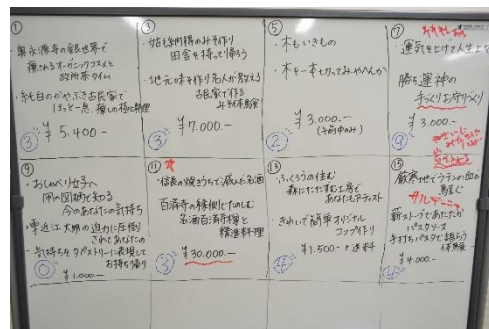 ①
・奥永源寺の銀世界で
癒されるオーガニックコスメと
政所茶タイム
・純白のかやぶき古民家で
ほっと一息、癒しの極上料理
③
¥5.400-
③
・姑も納得のみそ作り
田舎を持って帰ろう
・地元味噌作り名人が教える
古民家で作る
みそ体験
¥7.000-
③
⑤
・木もいきもの
・木を一本切ってみやへんか
¥3.000-
(午前中のみ)
②
⑦
・運気を上げて人生上々
勝ち運神の
手づくりお守りづくり
¥3.000-
⑨
⑨
・おしゃべり女子へ
凧の図柄で知る
今のあなたの気持ち
・東近江大凧の迫力に圧倒
されてあなたの
気持ちをタペストリーに表現して
お持ち帰り
¥1.000-
⑪
・信長の焼きうちで滅んだ名酒
百済寺の縁側でたのしむ
名酒百済寺樽と
精進料理
③
¥30.000-
⑬
・ふくろうの住む
森にたたずむ工房で
あなたもアーティスト
・きれいで簡単オリジナル
コップ作り
¥1.500- + 送料
⑮
厳寒地でラテンの血が
騒ぐ
薪ストーブであたたか
パスタソース
手打ちパスタで踊ろう
体験
¥4.000-